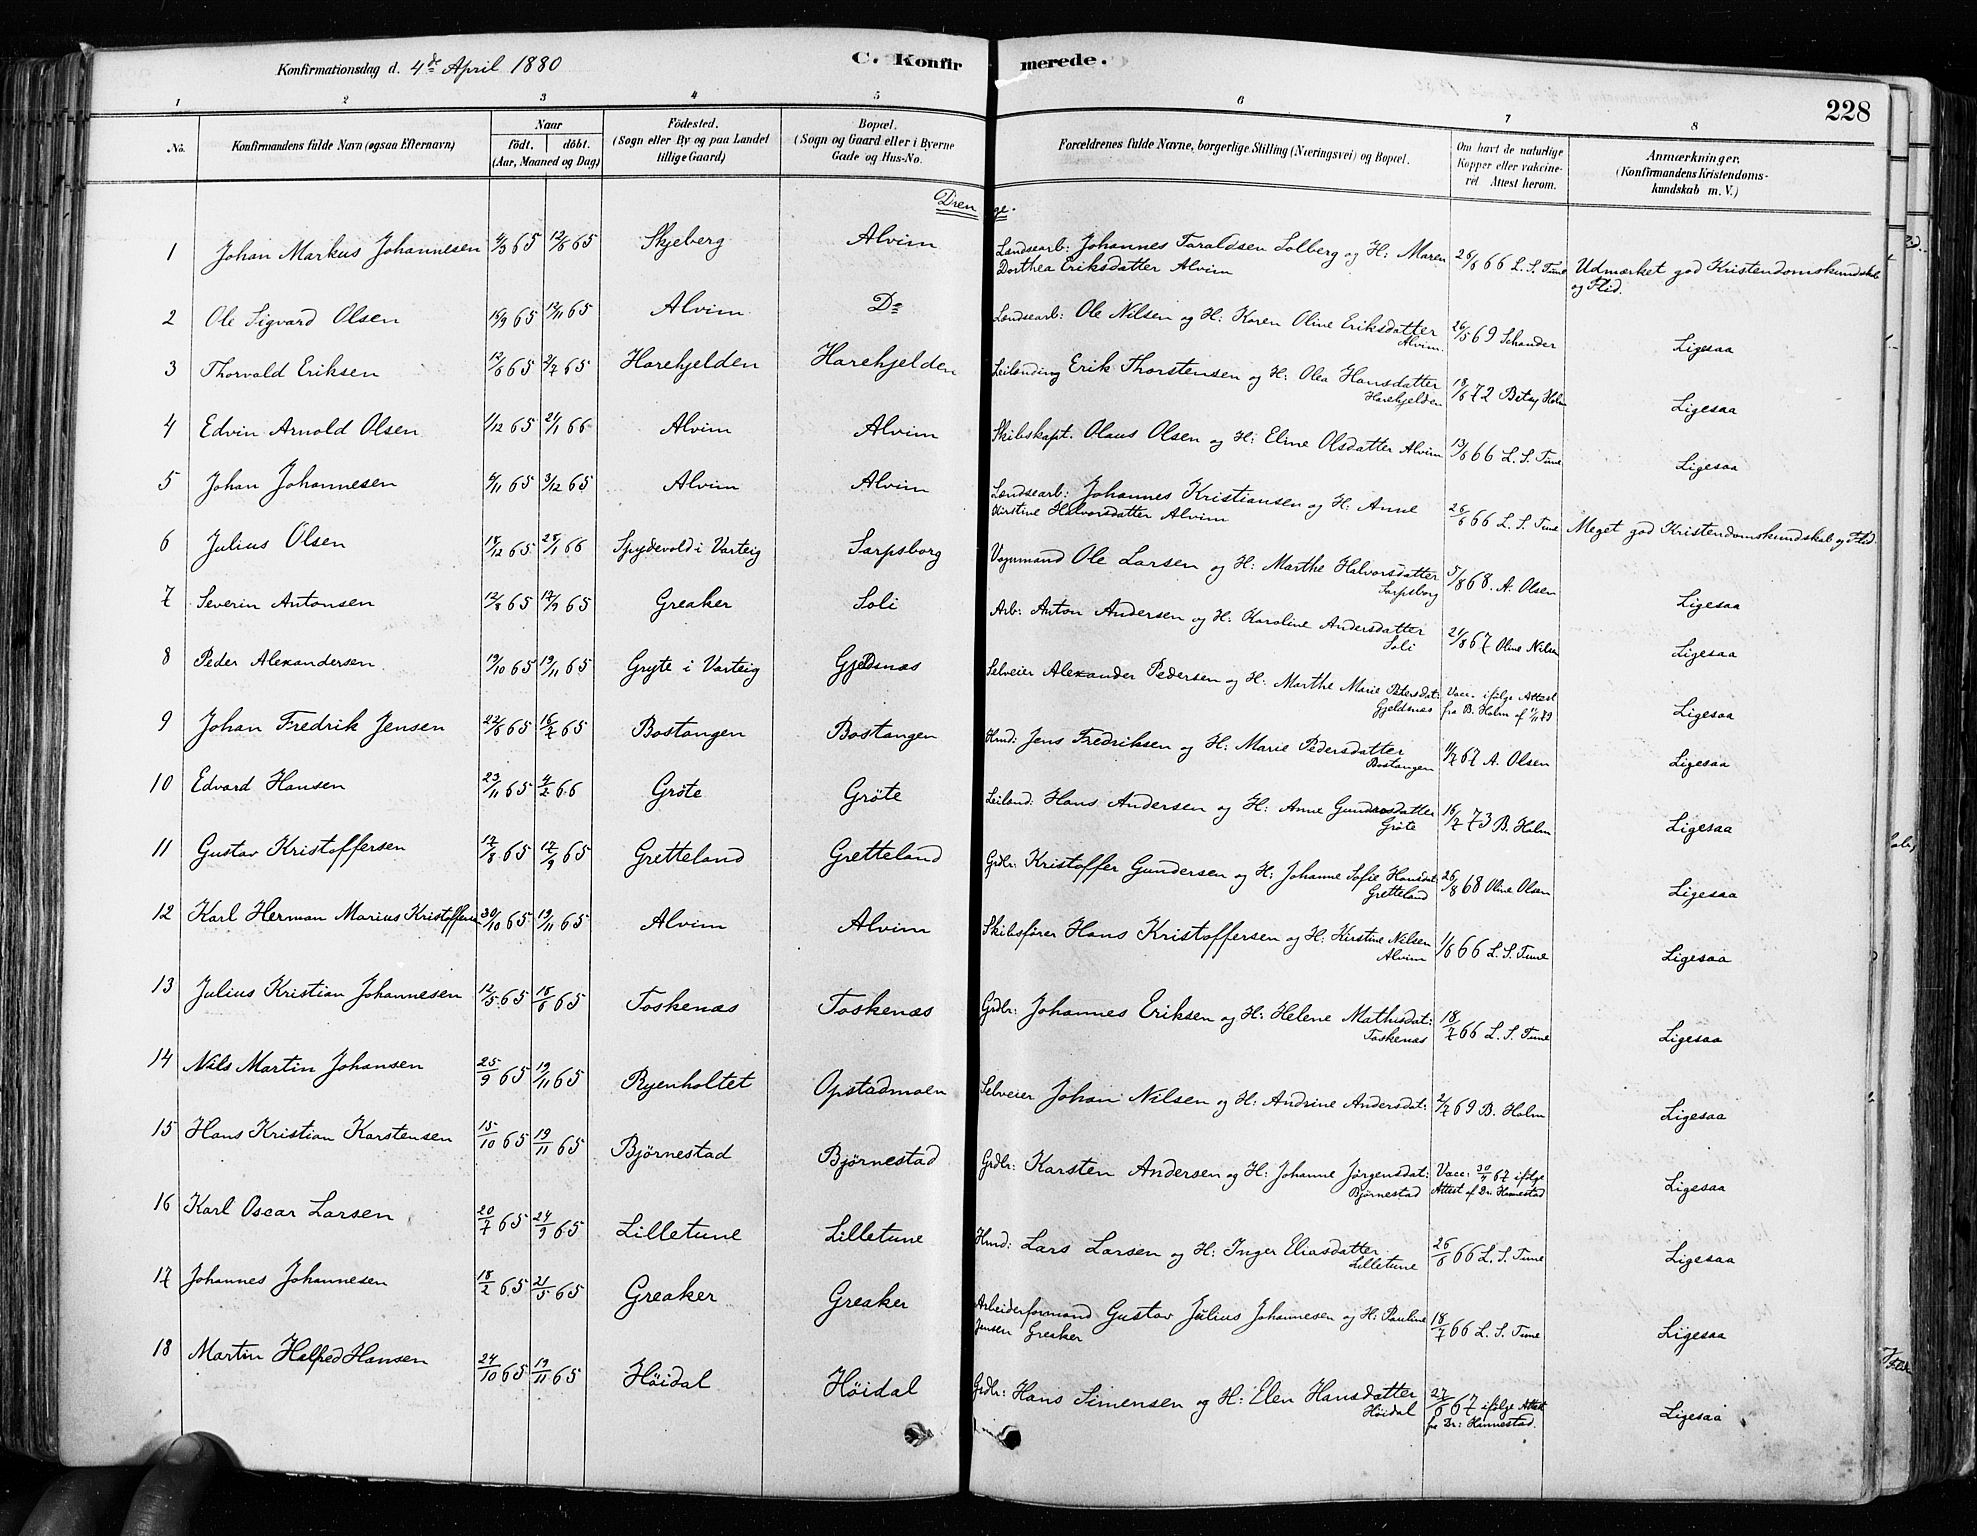 Konfirmationsdag d. 4de April 1880 C. Konfirmerede. 228
1 2 3 4 5 6 7 8
No. Konfirmandens fulde Navn (ogsaa Efternavn) Naar født. døbt. (Aar, Maaned og Dag) Födested. (Sogn eller By og paa Landet tillige Gaard) Bopæl. (Sogn og Gaard eller i Byerne Gade og Hus-No. Forældrenes fulde Navne, borgerlige Stilling (Næringsvei) og Bopæl. Om havt de naturlige Kopper eller vakcineret Attest herom. Anmærkninger. (Konfirmandens Kristendomskundskab m. V.)
Drenge.
1 Johan Markus Johannesen 4/3 65 12/6 65 Skjeberg Alvim Landsearb: Johannes Taraldsen Solberg og H: Maren Dorthea Eriksdatter Alvim 26/6 66 L. S. Tune Udmærket god Kristendomskundskab og Flid.
2 Ole Sigvard Olsen 15/9 65 12/11 65 Alvim Do Landsearb: Ole Nilsen og H: Karen Oline Eriksdatter Alvim. 26/5 69 Schander Ligesaa
3 Thorvald Eriksen 12/6 65 2/7 65 Harehjelden Harehjelden Leilending Erik Thorstensen og H: Olea Hansdatter Harehjelden 18/6 72 Betzy Holm Ligesaa
4 Edvin Arnold Olsen 1/12 65 21/1 66 Alvim Alvim Skibskapt. Olaus Olsen og H: Eline Olsdatter Alvim 13/6 66 L. S. Tune Ligesaa
5 Johan Johannesen 6/11 65 3/12 65 Alvim Alvim Landsearb: Johannes Kristiansen og H: Anne Kirstine Halvorsdatter Alvim 26/6 66 L. S. Tune Meget god Kristendomskundskab og Flid.
6 Julius Olsen 18/12 65 28/1 66 Spydevold i Varteig Sarpsborg Vognmand Ole Larsen og H: Marthe Halvorsdatter Sarpsborg 5/8 68. A. Olsen Ligesaa
7 Severin Antonsen 12/8 65 17/9 65 Greaker Soli Arb: Anton Andersen og H: Karoline Andersdatter Soli 21/8 67 Oline Nilsen Ligesaa
8 Peder Alexandersen 19/10 65 19/11 65 Gryte i Varteig Gjeldsnæs Selveier Alexander Pedersen og H: Marthe Marie Petersdat: Gjeldsnæs Vacc. ifølge Attest fra B. Holm af 11/11 89 Ligesaa
9 Johan Fredrik Jensen 22/6 65 16/7 65 Bostangen Bostangen Hmd: Jens Fredriksen og H: Marie Pedersdatter Bostangen 11/7 67 A. Olsen Ligesaa
10 Edvard Hansen 23/11 65 4/2 66 Gröte Gröte Leilend: Hans Andersen og H: Anne Gundersdatter Gröte 16/7 73 B. Holm Ligesaa
11 Gustav Kristoffersen 17/8 65 17/9 65 Gretteland Gretteland Grdbr: Kristoffer Gundersen og H: Johanne Sofie Hansdat: Gretteland 26/8 68 Oline Olsen Ligesaa
12 Karl Herman Marius Kristoffersen 30/10 65 19/11 65 Alvim Alvim Skibsfører Hans Kristoffersen og H: Kirstine Nilsen Alvim 1/6 66 L. S. Tune Ligesaa
13 Julius Kristian Johannesen 12/5 65 18/6 65 Toskenæs Toskenæs Grdbr: Johannes Eriksen og H: Helene Mathisdat: Toskenæs 18/7 66 L. S. Tune Ligesaa
14 Nils Martin Johansen 25/9 65 19/11 65 Ryenholtet Opstadmoen Selveier Johan Nilsen og H: Andrine Andersdat: 2/7 69 B. Holm Ligesaa
15 Hans Kristian Karstensen 15/10 65 19/11 65 Bjørnestad Bjørnestad Grdbr: Karsten Andersen og H: Johanne Jörgensdat: Bjørnestad Vacc: 30/4 67 ifølge Attest af Dr. Hannestad Ligesaa
16 Karl Oscar Larsen 20/7 65 24/9 65 Lilletune Lilletune Hmd: Lars Larsen og H: Inger Eliasdatter Lilletune 26/6 66 L. S. Tune Ligesaa
17 Johannes Johannesen 18/2 65 21/5 65 Greaker Greaker Arbeiderformand Gustav Julius Johannesen og H: Pauline Jensen Greaker 18/7 66 L. S. Tune Ligesaa
18 Martin Halfred Hansen 24/10 65 19/11 65 Höidal Höidal Grdbr: Hans Simensen og H: Elen Hansdatter Höidal 27/6 67 ifølge Attest fra Dr: Hannestad. Ligesaa